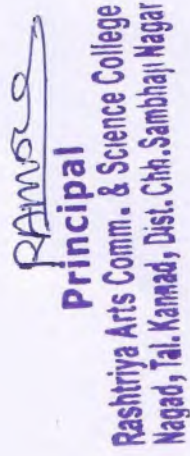 Principal
Rashtriya Arts Comm. & Science College
Nagad, Tal. Kannad, Dist. Chh.Sambhaji Nagar